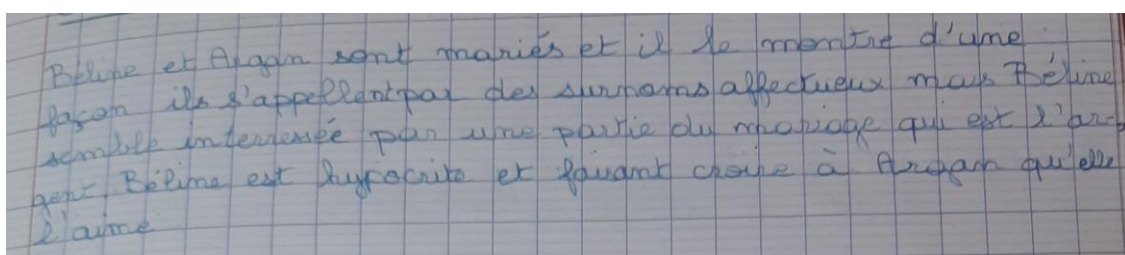 Béline et Argan sont mariés et il le montre d'une
façon ils s'appellent par des surnoms affectueux mais Béline
semble interressée par une partie du mariage qui est l'ar-
gent, Béline est hypocrite et faisant croire à Argan qu'elle
l'aime